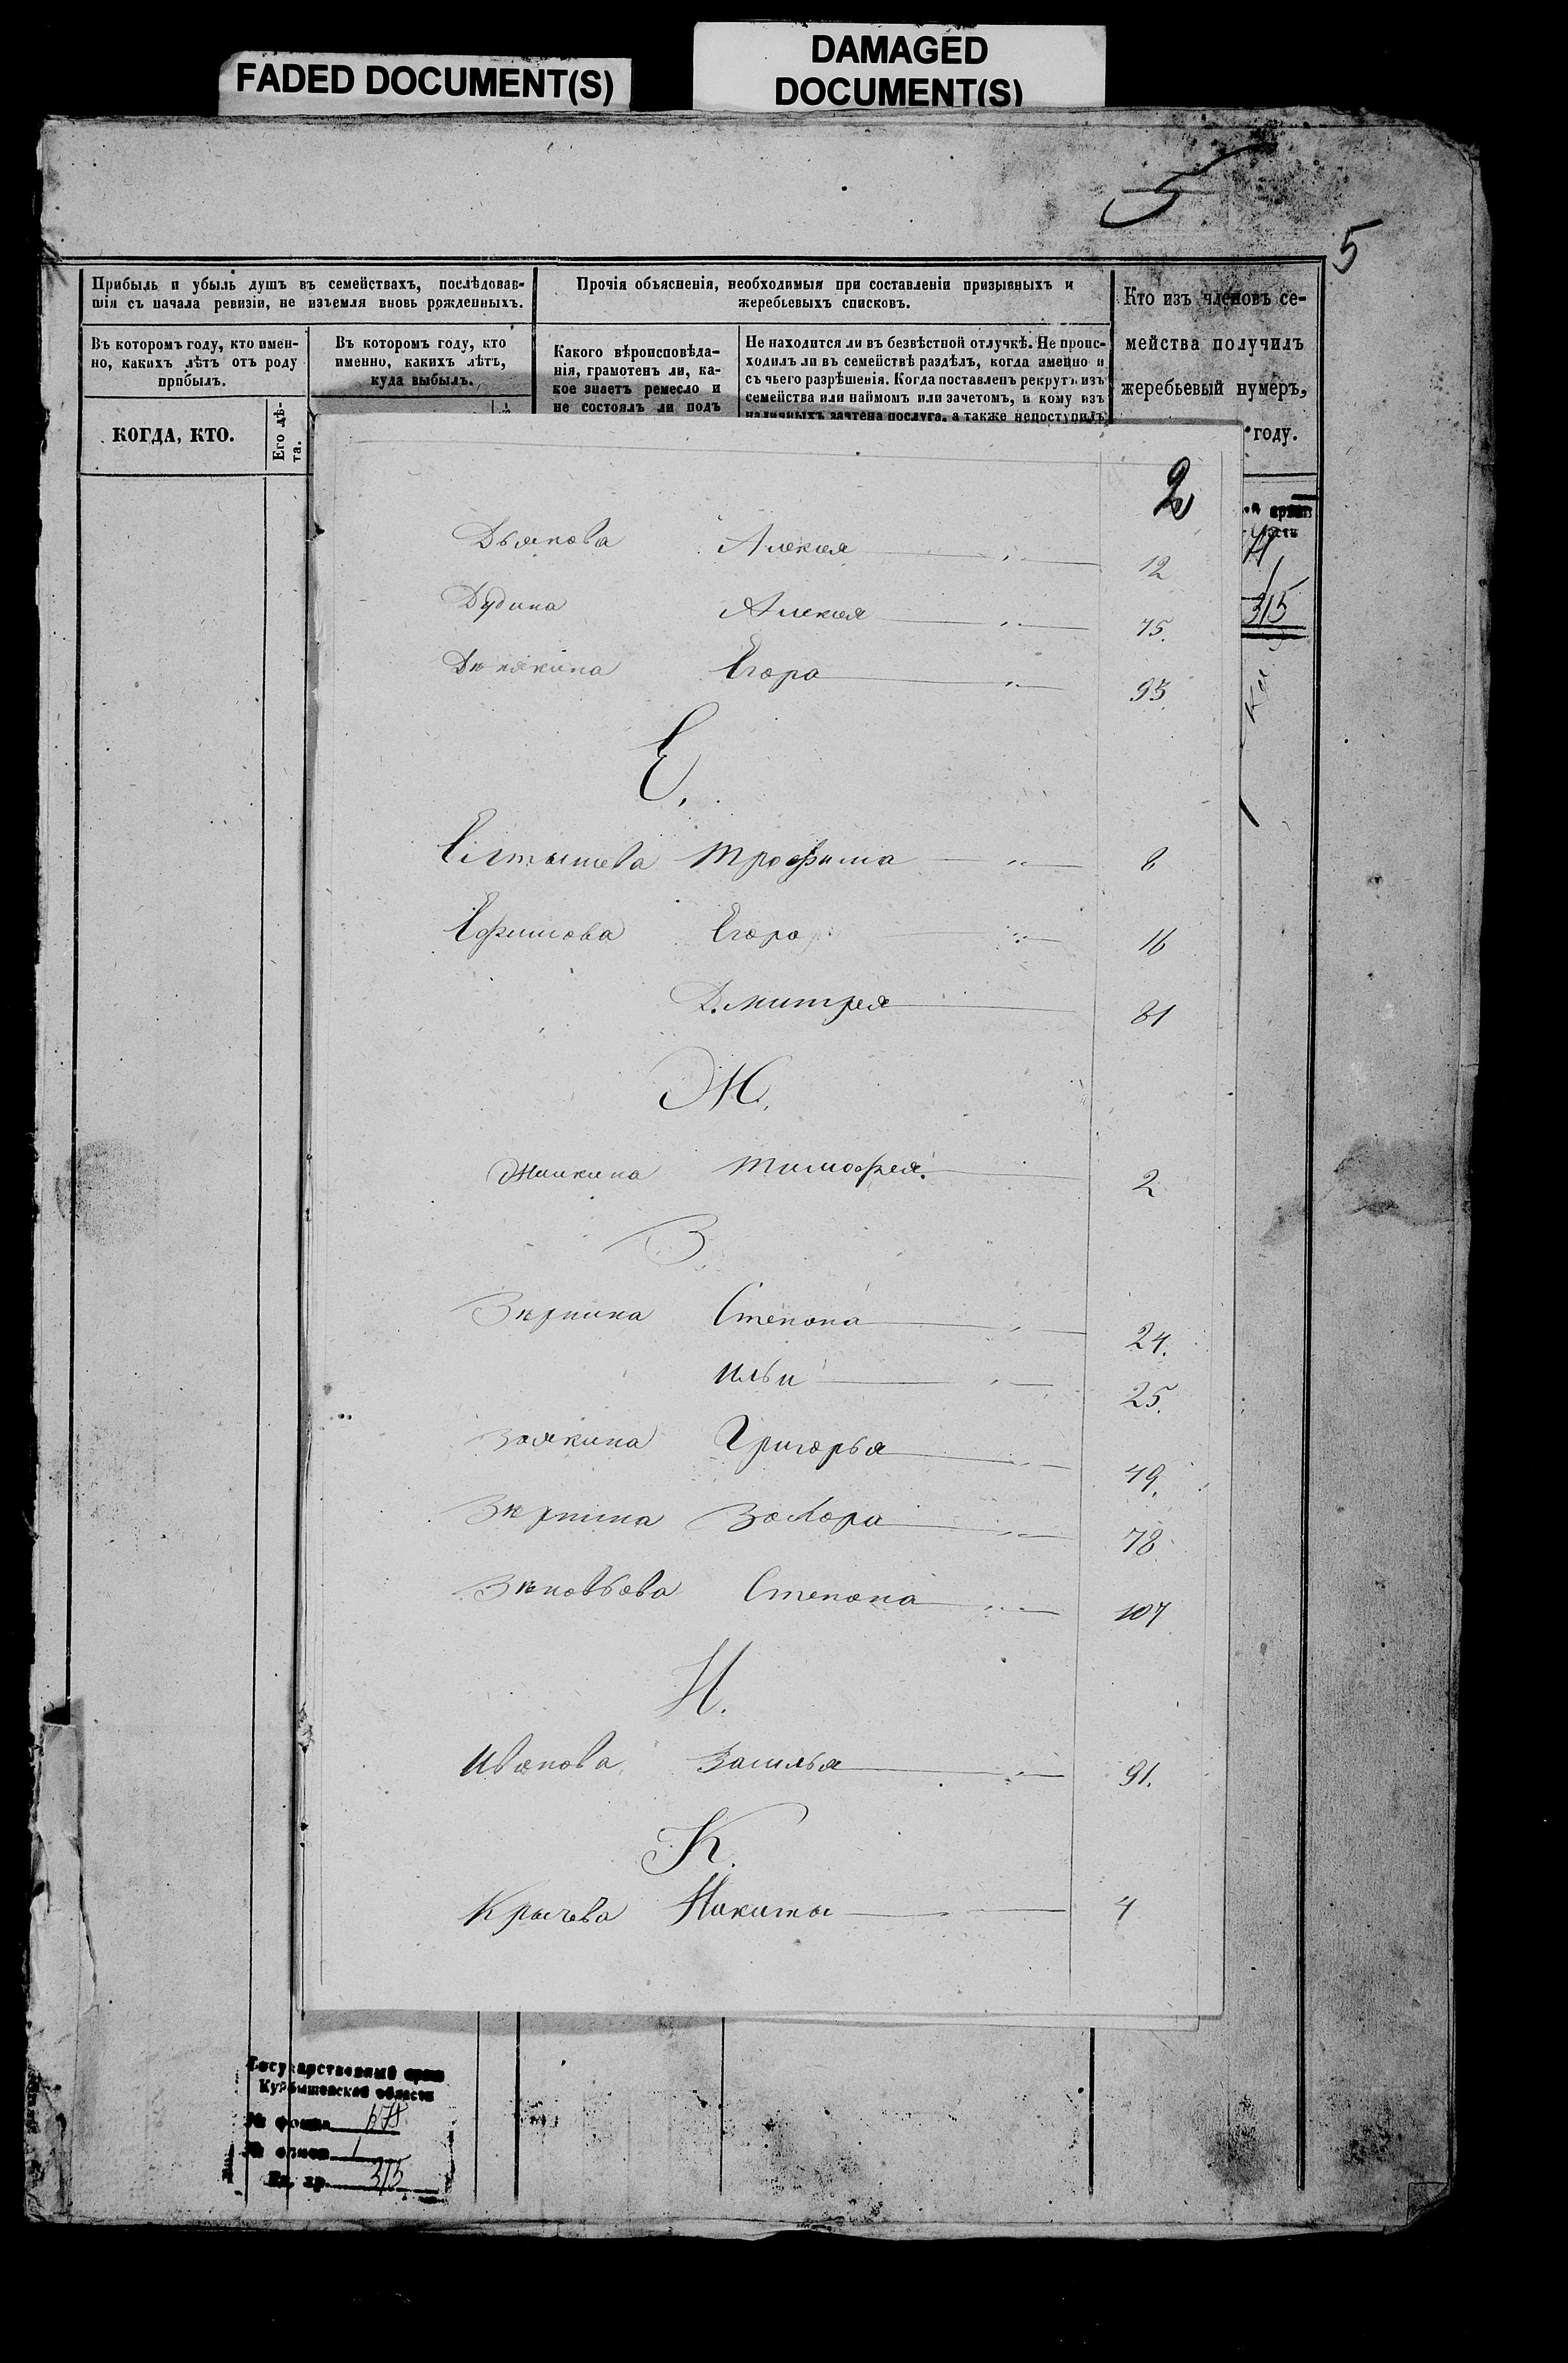 FADED DOCUMENT(S)
DAMAGED
DOCUMENT(S)
5
5
Прибыль и убыль душъ въ семействахъ, послѣдовав-
шія съ начала ревизіи, не изъемля вновь рожденныхъ.
Прочія объясненія, необходимыя при составленіи призывныхъ и
жеребьевыхъ списковъ.
Кто изъ членовъ се-
мейства получилъ
жеребьевый нумеръ,
году.
Въ которомъ году, кто имен-
но, какихъ лѣтъ отъ роду
прибылъ.
Въ которомъ году, кто
именно, какихъ лѣтъ,
куда выбылъ.
Какого вѣроисповѣда-
нія, грамотенъ ли, ка-
кое знаетъ ремесло и
не состоялъ ли подъ
Не находится ли въ безвѣстной отлучкѣ. Не проис-
ходилъ ли въ семействѣ раздѣлъ, когда именно и
съ чьего разрѣшенія. Когда поставленъ рекрутъ изъ
семейства или наймомъ или зачетомъ, и кому изъ
наличныхъ зачтена послуга, а также непоступилъ
КОГДА, КТО.
Его лѣ-
та.
315
2
Дьякова Алексея 12
Дудина Алексея 75.
Егора 93.
Е.
Елтышева Трофима 8
Ефимова Егора 16
Дмитрея 81
Ж.
Тимофея. 2
З.
Степана 24.
Ильи 25.
Заякина Григорья 49.
Захара 78
Степана 107
И.
Иванова Василья 91.
К.
Крычева Никиты 4
Государственный архив
Куйбышевской области
№ фонда
№ описи 1
Ед. хр. 315